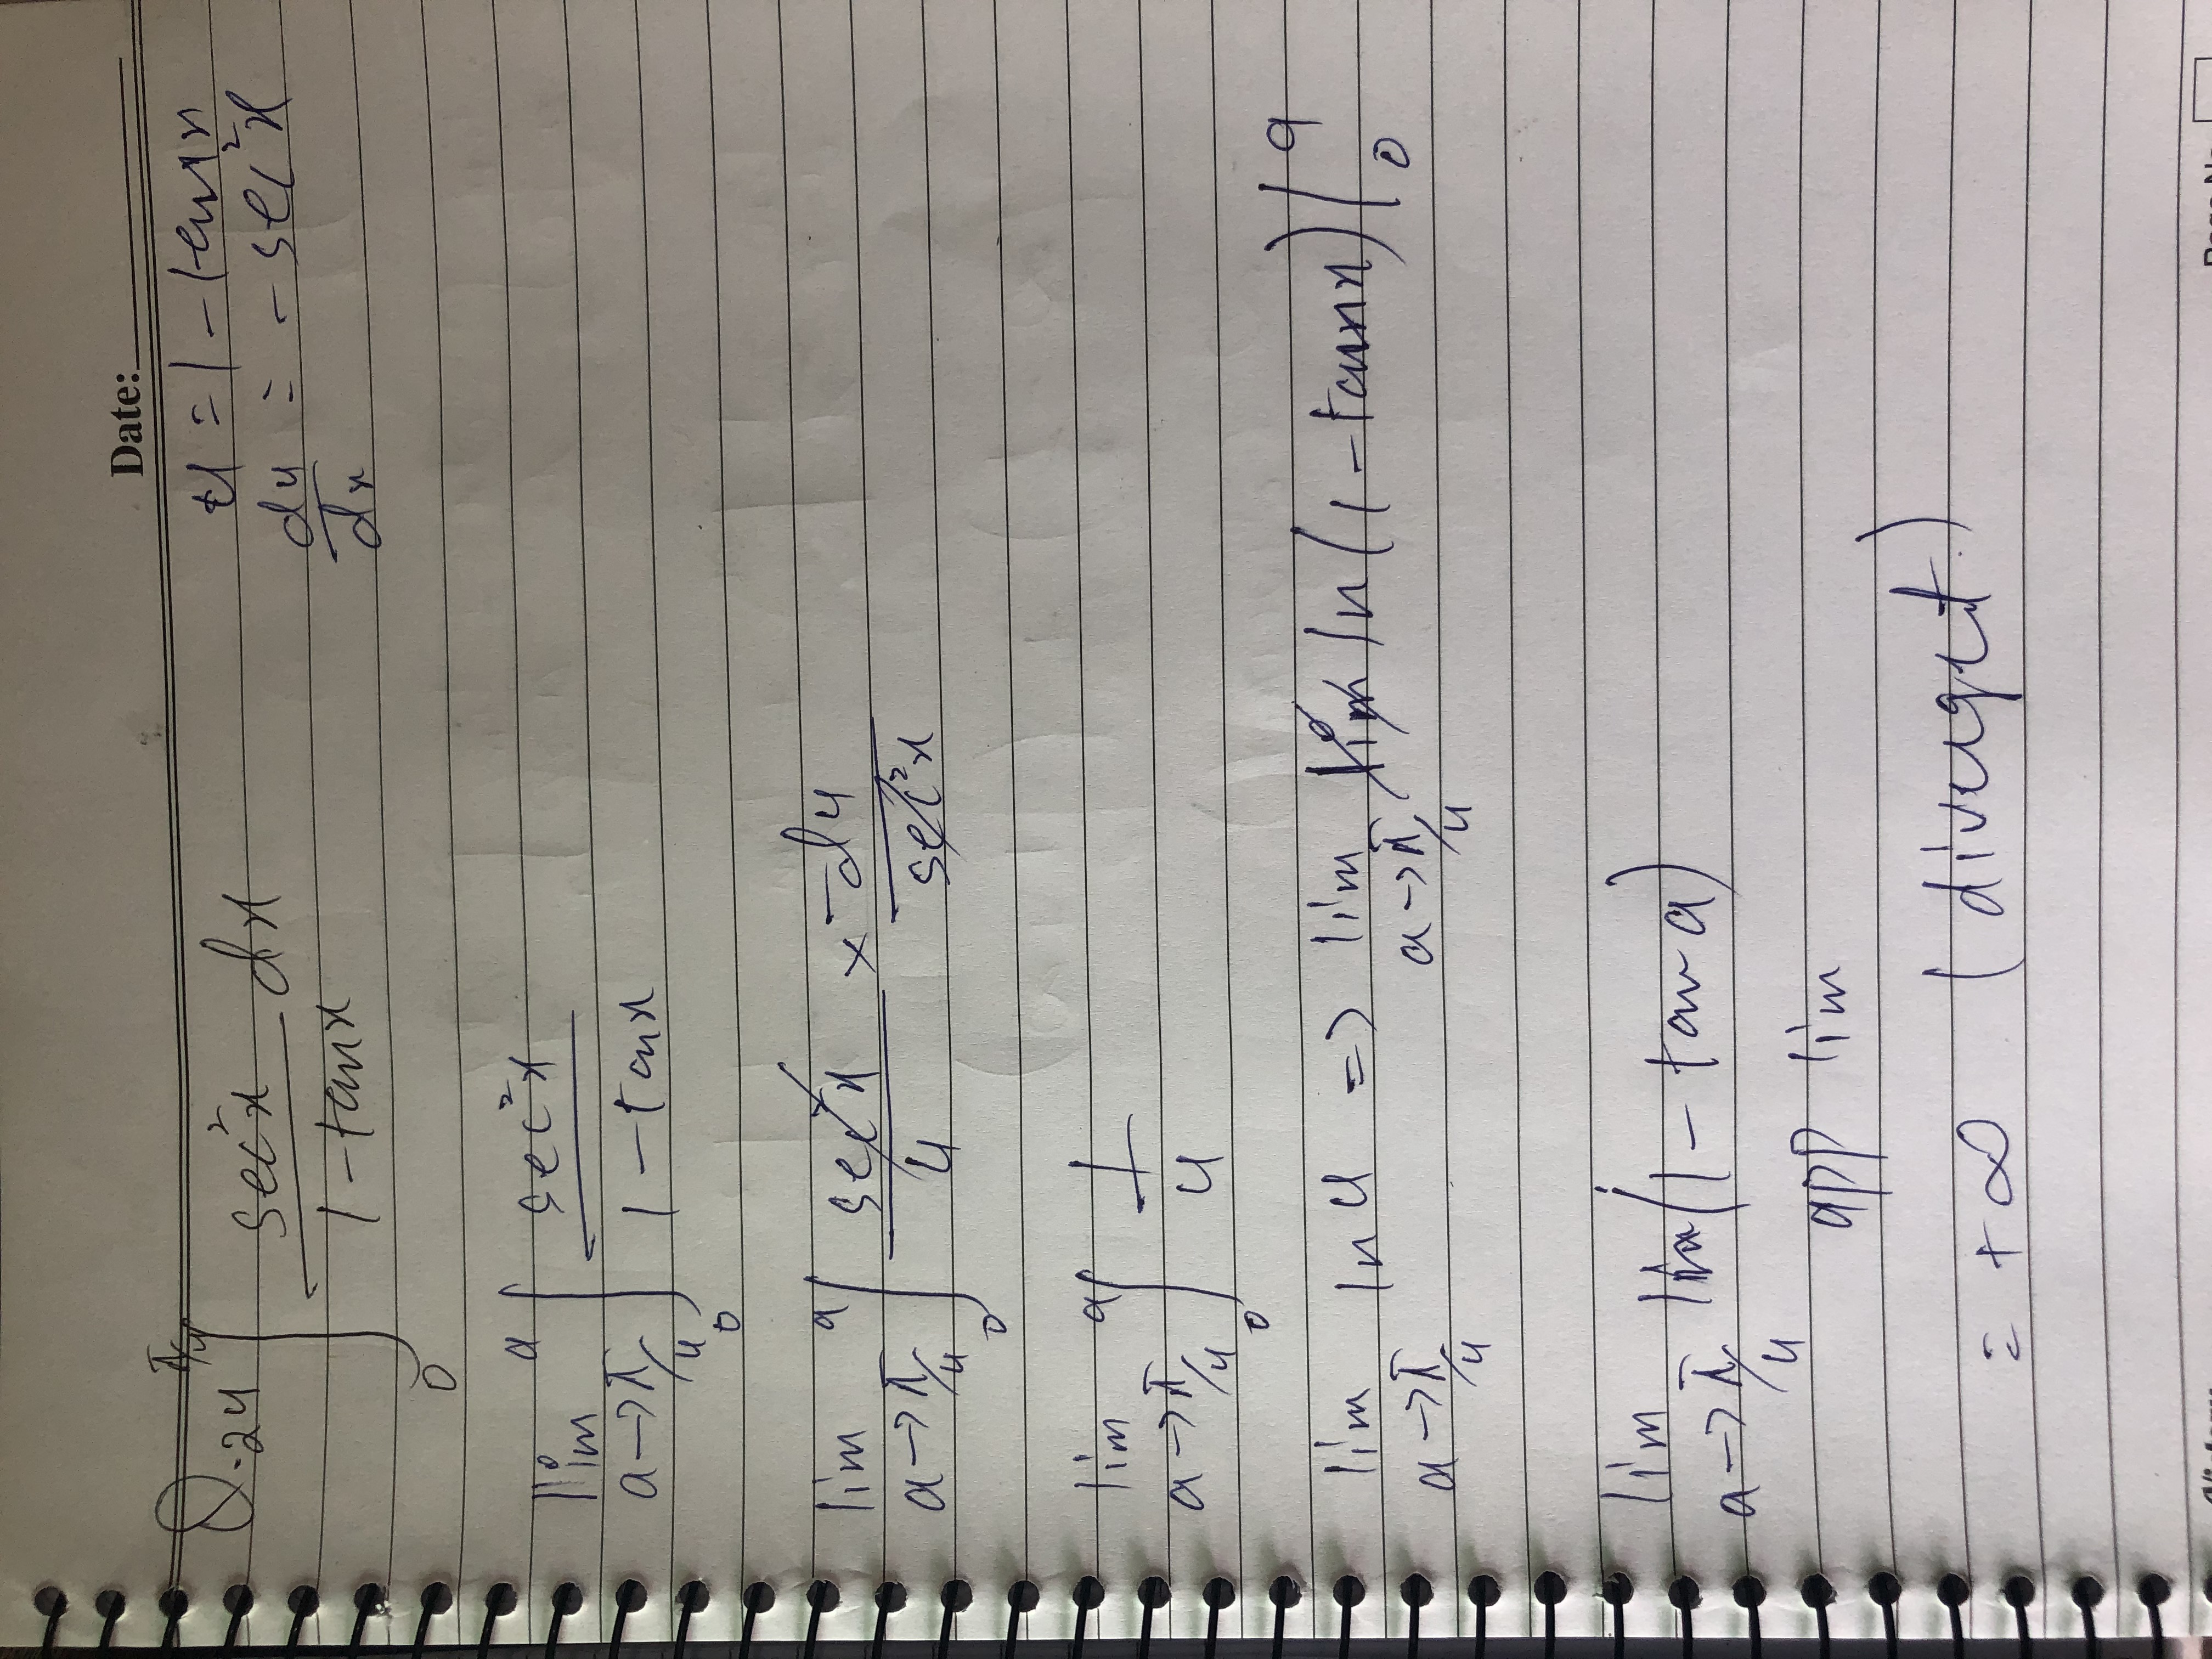 Date:
Q.24 ∫₀^(π/4) sec²x / (1 - tanx) dx
u = 1 - tanx
du/dx = - sec²x
lim a→π/4 ∫₀^a sec²x / (1 - tanx)
lim a→π/4 ∫₀^a sec²x / u × -du / sec²x
lim a→π/4 ∫₀^a 1/u
lim a→π/4 ln u => lim a→π/4 ln (1 - tanx) |₀^a
lim a→π/4 ln (1 - tan a)
app lim
= +∞ (divergent.)